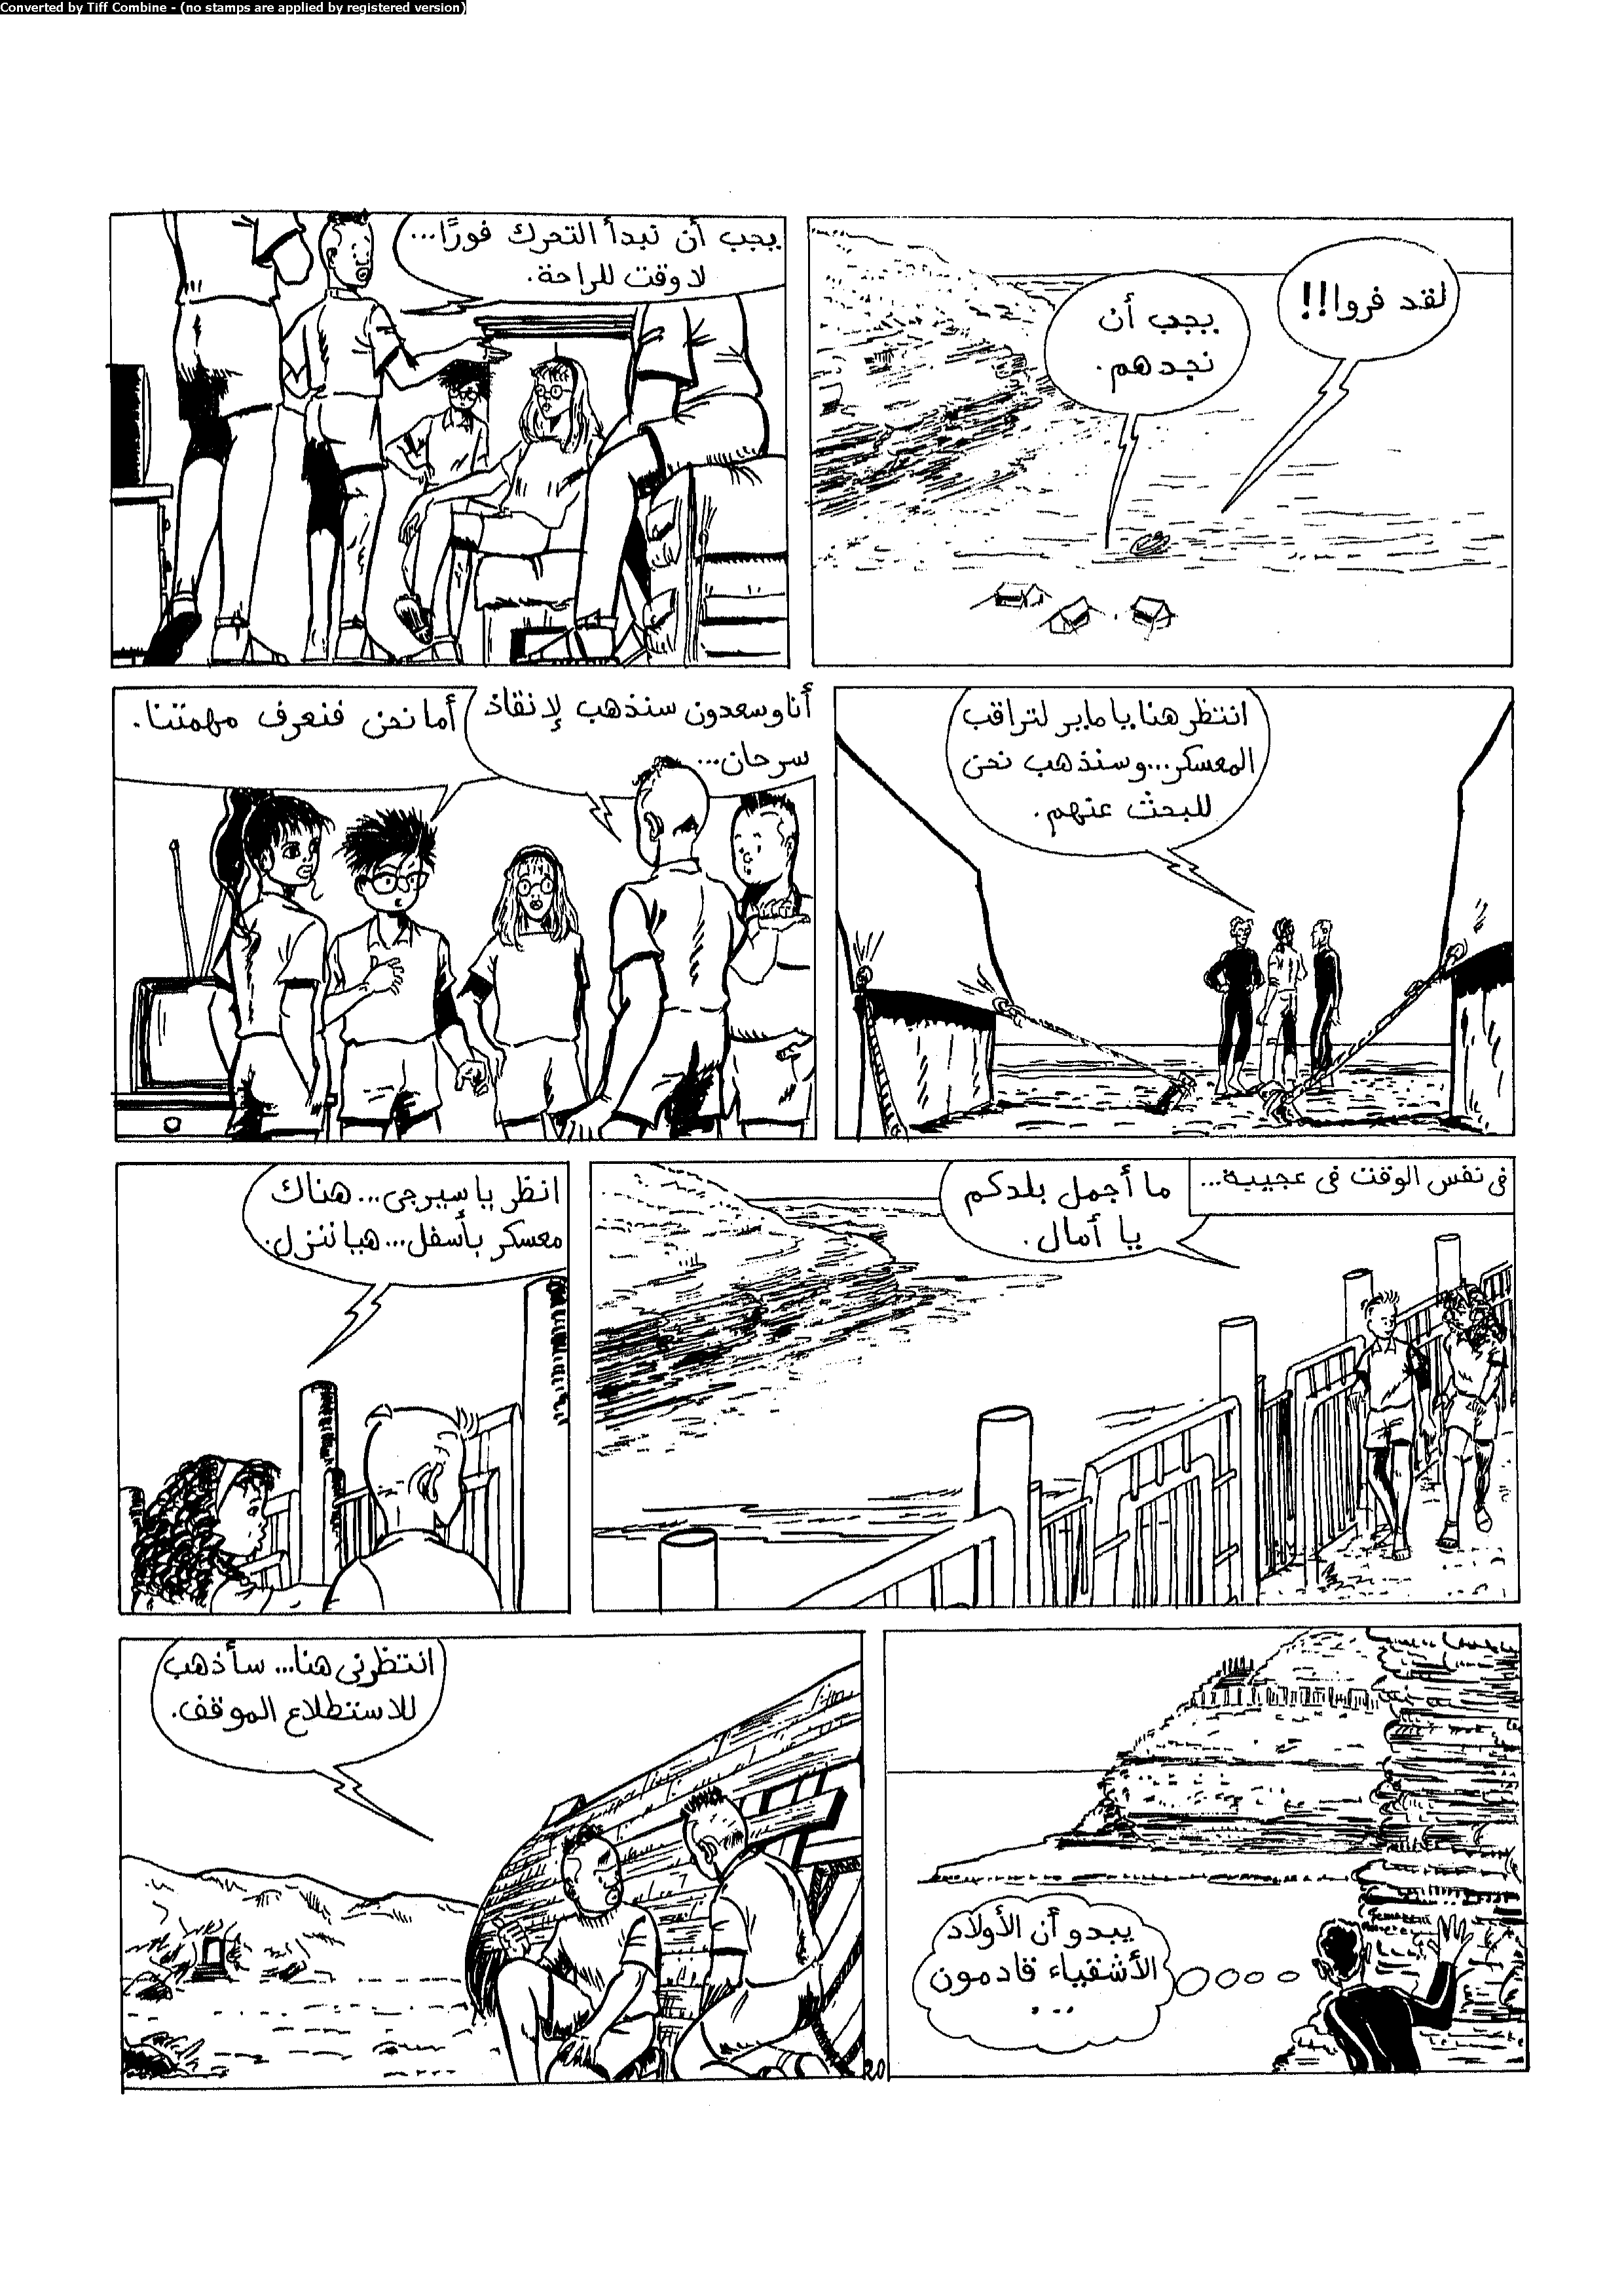 Converted by Tiff Combine - (no stamps are applied by registered version)
لقد فروا!!
يجب أن
نجدهم.
يجب أن نبدأ التحرك فورًا...
لا وقت للراحة.
انتظر هنا يا ماير لتراقب
المعسكر... وسنذهب نحن
للبحث عنهم.
أنا وسعدون سنذهب لإنقاذ
سرحان...
أما نحن فنعرف مهمتنا.
فى نفس الوقت فى عجيبة...
ما أجمل بلدكم
يا أمال.
انظر يا سيرجى... هناك
معسكر بأسفل... هيا ننزل.
يبدو أن الأولاد
الأشقياء قادمون
...
انتظرنى هنا... سأذهب
للاستطلاع الموقف.
20